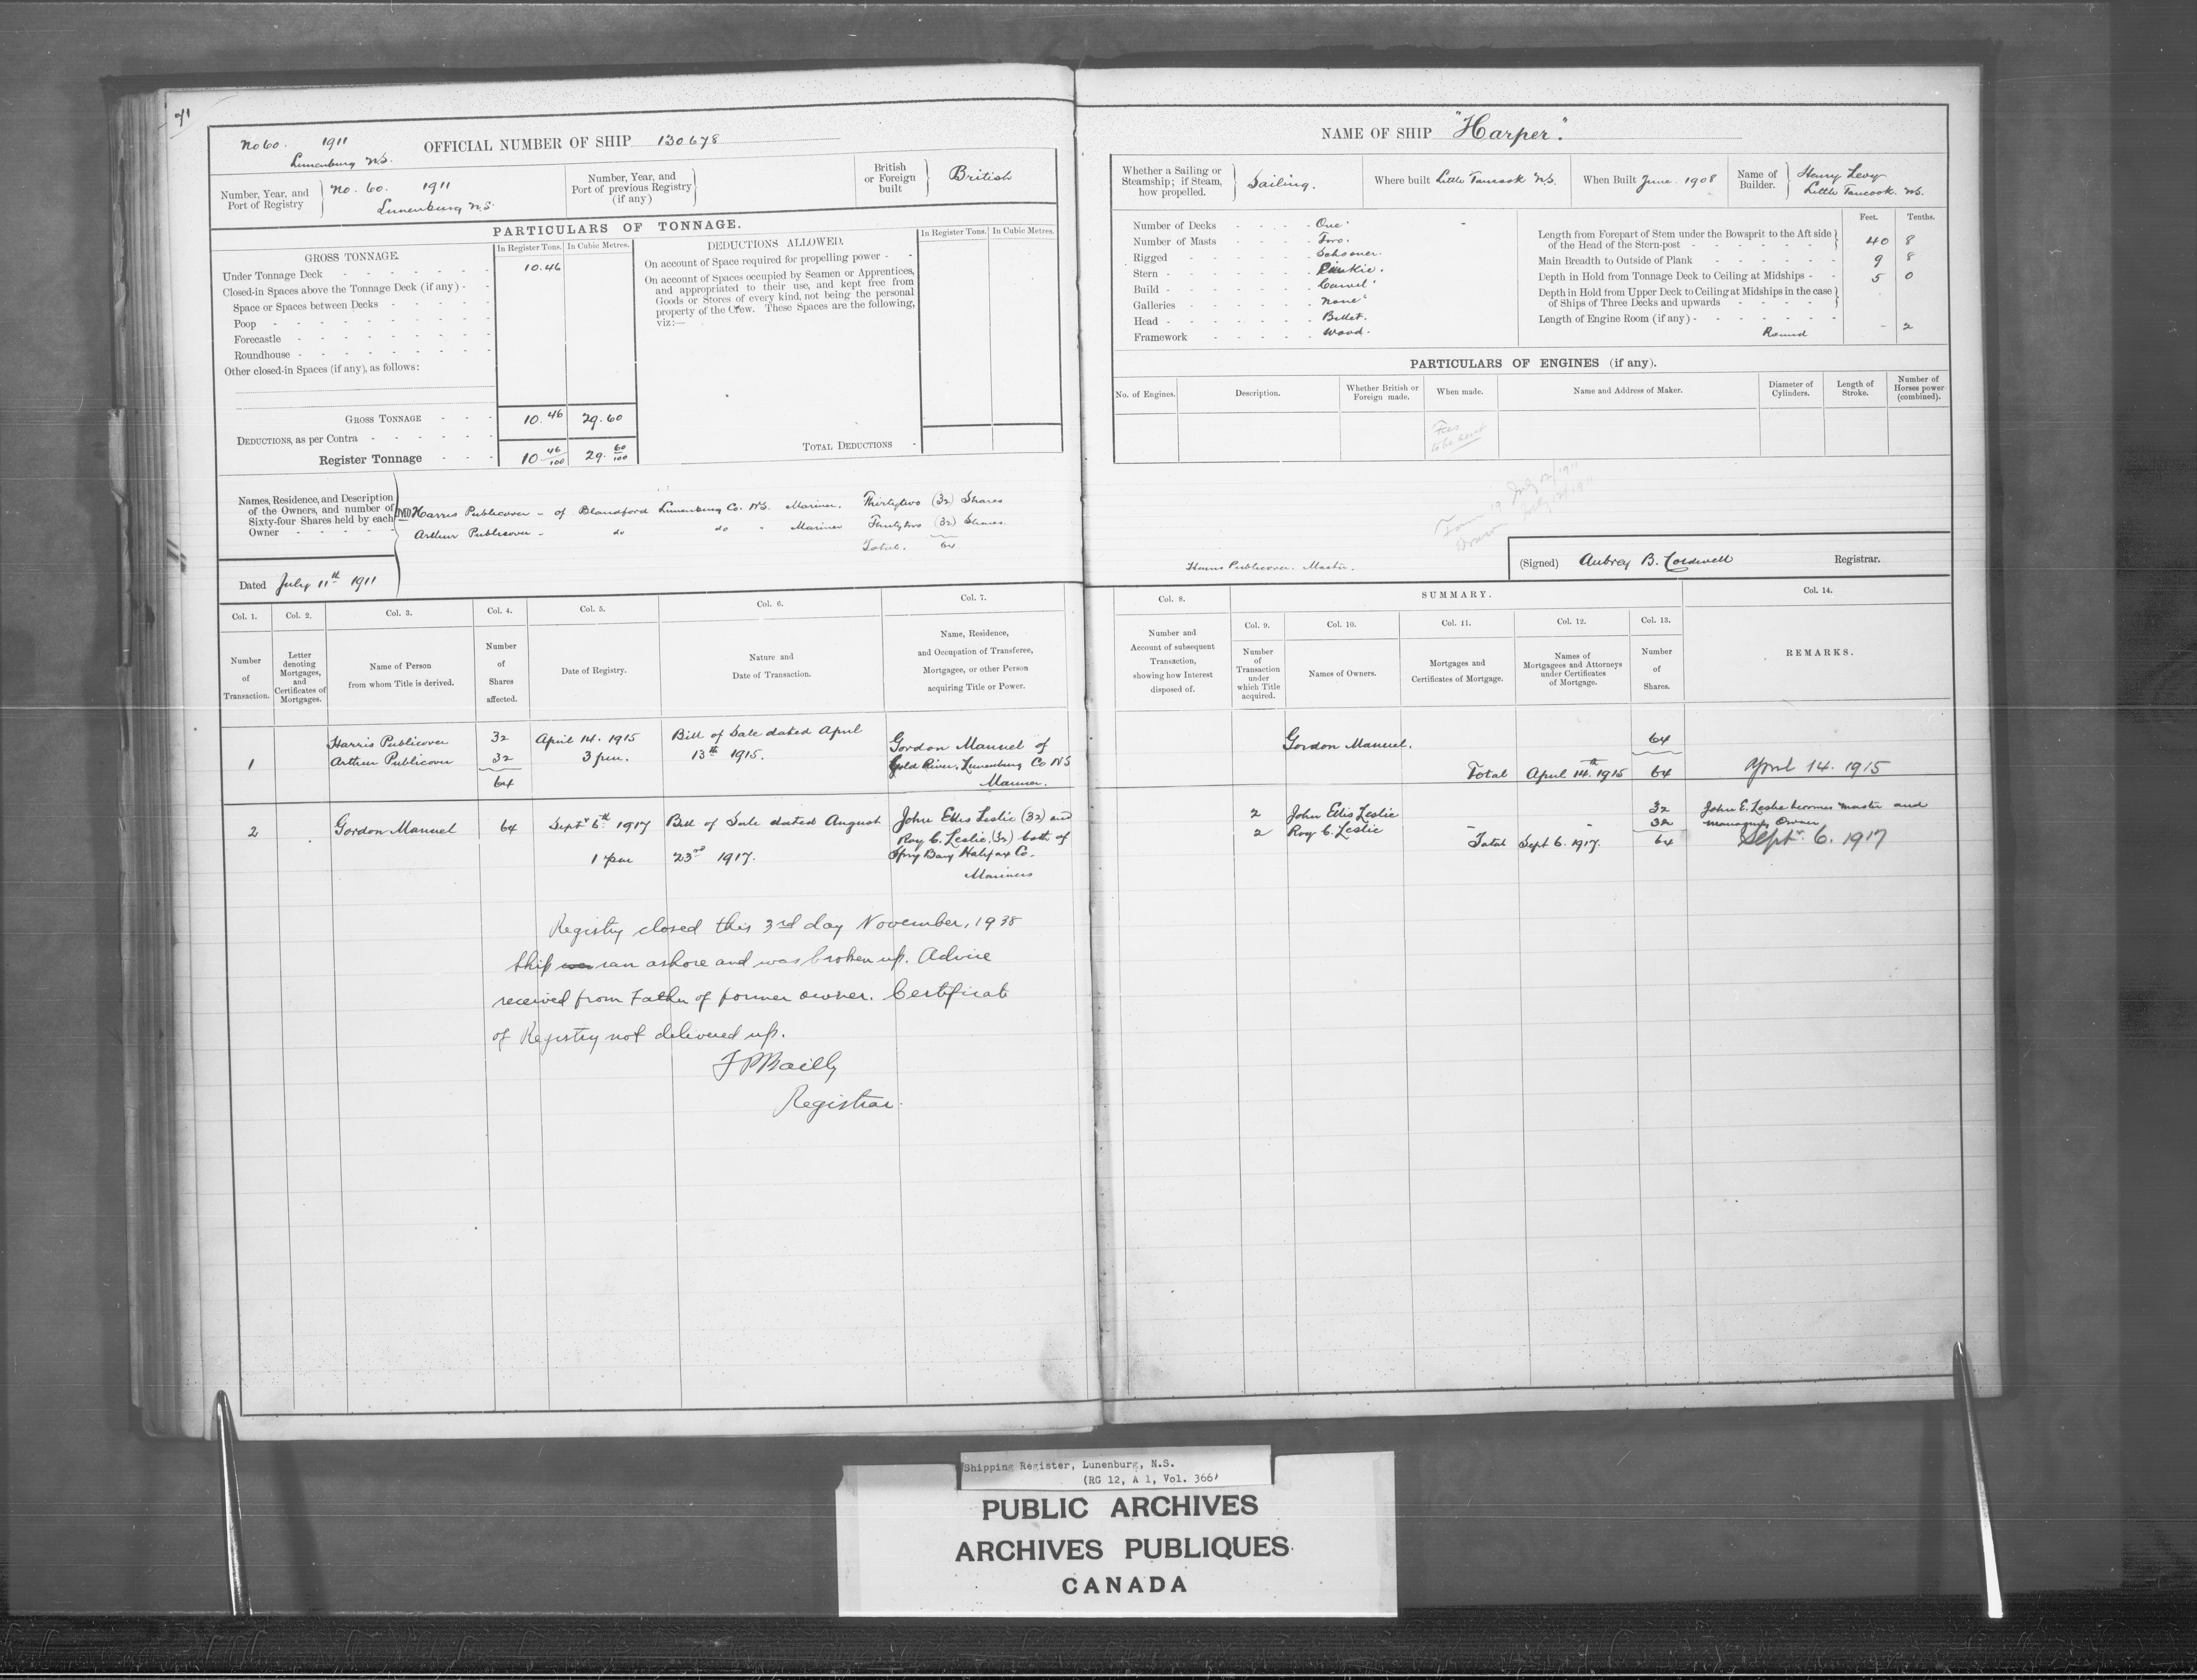 71
No 60. 1911
Lunenburg N.S.
OFFICIAL NUMBER OF SHIP 130678
Number, Year, and Port of Registry
No. 60. 1911
Lunenburg N.S.
Number, Year, and Port of previous Registry (if any)
British or Foreign built
British
PARTICULARS OF TONNAGE.
GROSS TONNAGE.
In Register Tons.
In Cubic Metres.
DEDUCTIONS ALLOWED.
In Register Tons.
In Cubic Metres.
Under Tonnage Deck 10.46
Closed-in Spaces above the Tonnage Deck (if any)
Space or Spaces between Decks
Poop
Forecastle
Roundhouse
Other closed-in Spaces (if any), as follows:
GROSS TONNAGE 10.46 29.60
DEDUCTIONS, as per Contra
Register Tonnage 10 46/100 29. 60/100
On account of Space required for propelling power
On account of Spaces occupied by Seamen or Apprentices,
and appropriated to their use, and kept free from
Goods or Stores of every kind, not being the personal
property of the Crew. These Spaces are the following,
viz:—
TOTAL DEDUCTIONS
Names, Residence, and Description
of the Owners, and number of
Sixty-four Shares held by each
Owner
Harris Publicover - of Blandford Lunenburg Co. N.S. Mariner. Thirtytwo (32) Shares
Arthur Publicover - do do " Mariner Thirtytwo (32) Shares.
Total. 64
Dated July 11th 1911
Col. 1.
Col. 2.
Col. 3.
Col. 4.
Col. 5.
Col. 6.
Col. 7.
Number of Transaction.
Letter denoting Mortgages, and Certificates of Mortgages.
Name of Person from whom Title is derived.
Number of Shares affected.
Date of Registry.
Nature and Date of Transaction.
Name, Residence, and Occupation of Transferee, Mortgagee, or other Person acquiring Title or Power.
Harris Publicover 32 April 14. 1915 Bill of Sale dated April Gordon Manuel of
1 Arthur Publicover 32 3 pm. 13th 1915. Gold River, Lunenburg Co NS
64 Mariner.
2 Gordon Manuel 64 Septr 6th 1917 Bill of Sale dated August John Ellis Leslie (32) and
Roy C. Leslie, (32) both of
1 pm 23rd 1917. Spry Bay Halifax Co.
Mariners
Registry closed this 3rd day November, 1938
Ship was ran ashore and was broken up. Advice
received from Father of former owner. Certificate
of Registry not delivered up.
Registrar.
NAME OF SHIP "Harper".
Whether a Sailing or Steamship; if Steam, how propelled.
Sailing.
Where built Little Tancook N.S.
When Built June. 1908
Name of Builder.
Henry Levy
Little Tancook. N.S.
Number of Decks One.
Number of Masts Two.
Rigged Schooner.
Stern Pinkie.
Build Carvel.
Galleries None.
Head Billet.
Framework Wood.
Feet. Tenths.
Length from Forepart of Stem under the Bowsprit to the Aft side
of the Head of the Stern-post 40 8
Main Breadth to Outside of Plank 9 8
Depth in Hold from Tonnage Deck to Ceiling at Midships 5 0
Depth in Hold from Upper Deck to Ceiling at Midships in the case
of Ships of Three Decks and upwards
Length of Engine Room (if any)
Round - 2
PARTICULARS OF ENGINES (if any).
No. of Engines.
Description.
Whether British or Foreign made.
When made.
Name and Address of Maker.
Diameter of Cylinders.
Length of Stroke.
Number of Horses power (combined).
Fees
to be sent
Form 19 July 12/1911
Harris Publicover. Master.
(Signed) Aubrey B. Coldwell Registrar.
Col. 8.
SUMMARY.
Col. 14.
Col. 9.
Col. 10.
Col. 11.
Col. 12.
Col. 13.
Number and Account of subsequent Transaction, showing how Interest disposed of.
Number of Transaction under which Title acquired.
Names of Owners.
Mortgages and Certificates of Mortgage.
Names of Mortgagees and Attorneys under Certificates of Mortgage.
Number of Shares.
REMARKS.
Gordon Manuel. 64
Total April 14.th 1915 64 April 14. 1915
2 John Ellis Leslie 32 John E. Leslie becomes master and
2 Roy C. Leslie 32 managing Owner
Total Sept 6. 1917. 64 Septr. 6. 1917
Shipping Register, Lunenburg, N.S.
(RG 12, A 1, Vol. 366)
PUBLIC ARCHIVES
ARCHIVES PUBLIQUES
CANADA